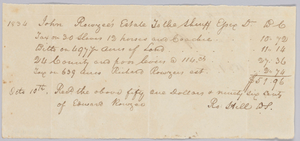 1824 John Rowzee's Estate To the Sheriff Essex Dr D. C
Tax on 30 Slaves 13 horses and
Ditto on 697½ acres of Land 11.14
24 County and poor Levies @ 114 27.36
Tax on 639 acres Richard Rowzees est. 2.74
$51.96
Octo 18th. Recd the above fifty one dollars & ninety six cents
of Edward Rowzee
Ro Hill D.S.